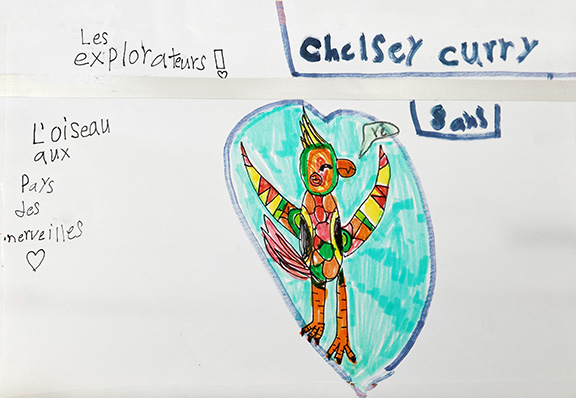 Les
explorateurs !
Chelsey curry
8 ans
L'oiseau
aux
Pays
des
merveilles